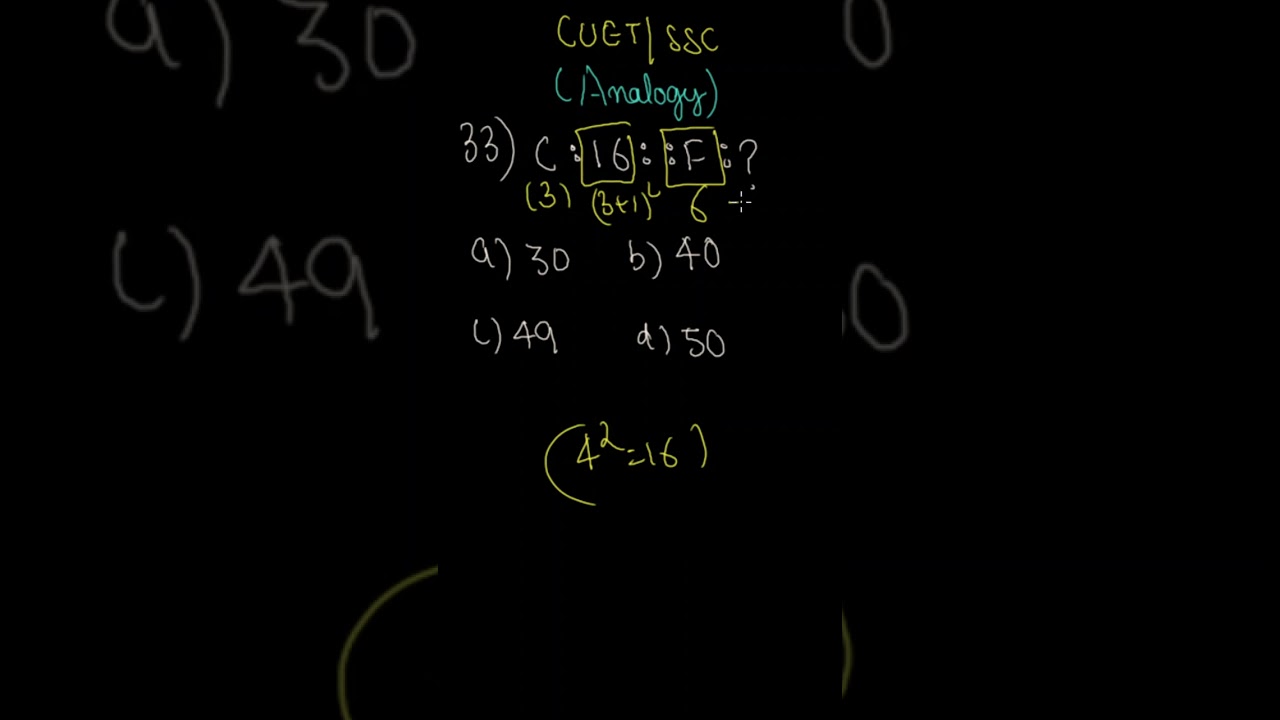 CUET/SSC
(Analogy)
33) C : 16 : : F : ?
(3) (3+1)² 6
a) 30 b) 40
c) 49 d) 50
(4²=16)